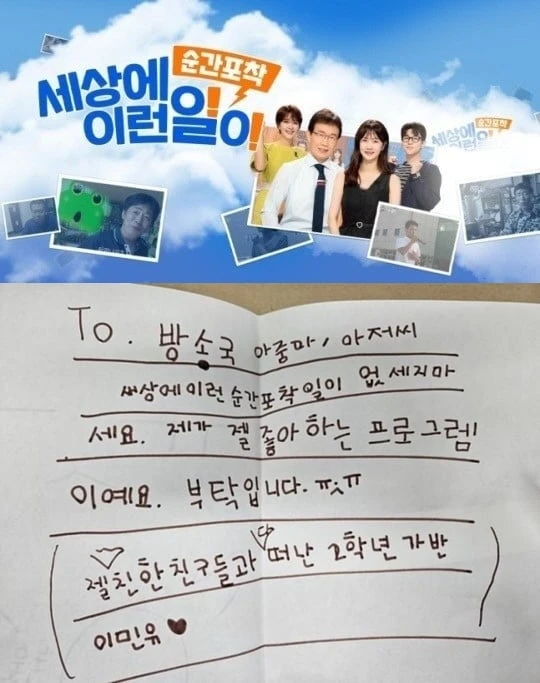 순간포착
세상에
이런일이!
순간포착
세상에
이런일이
To. 방소국 아줌마, 아저씨
세상에이런 순간포착 일이 없세지마
세요. 제가 젤 좋아하는 프로그렘
이예요. 부탁입니다. ㅠㅠ
젤 친한친구들과 다 떠난 2학년 가반
이민유♥